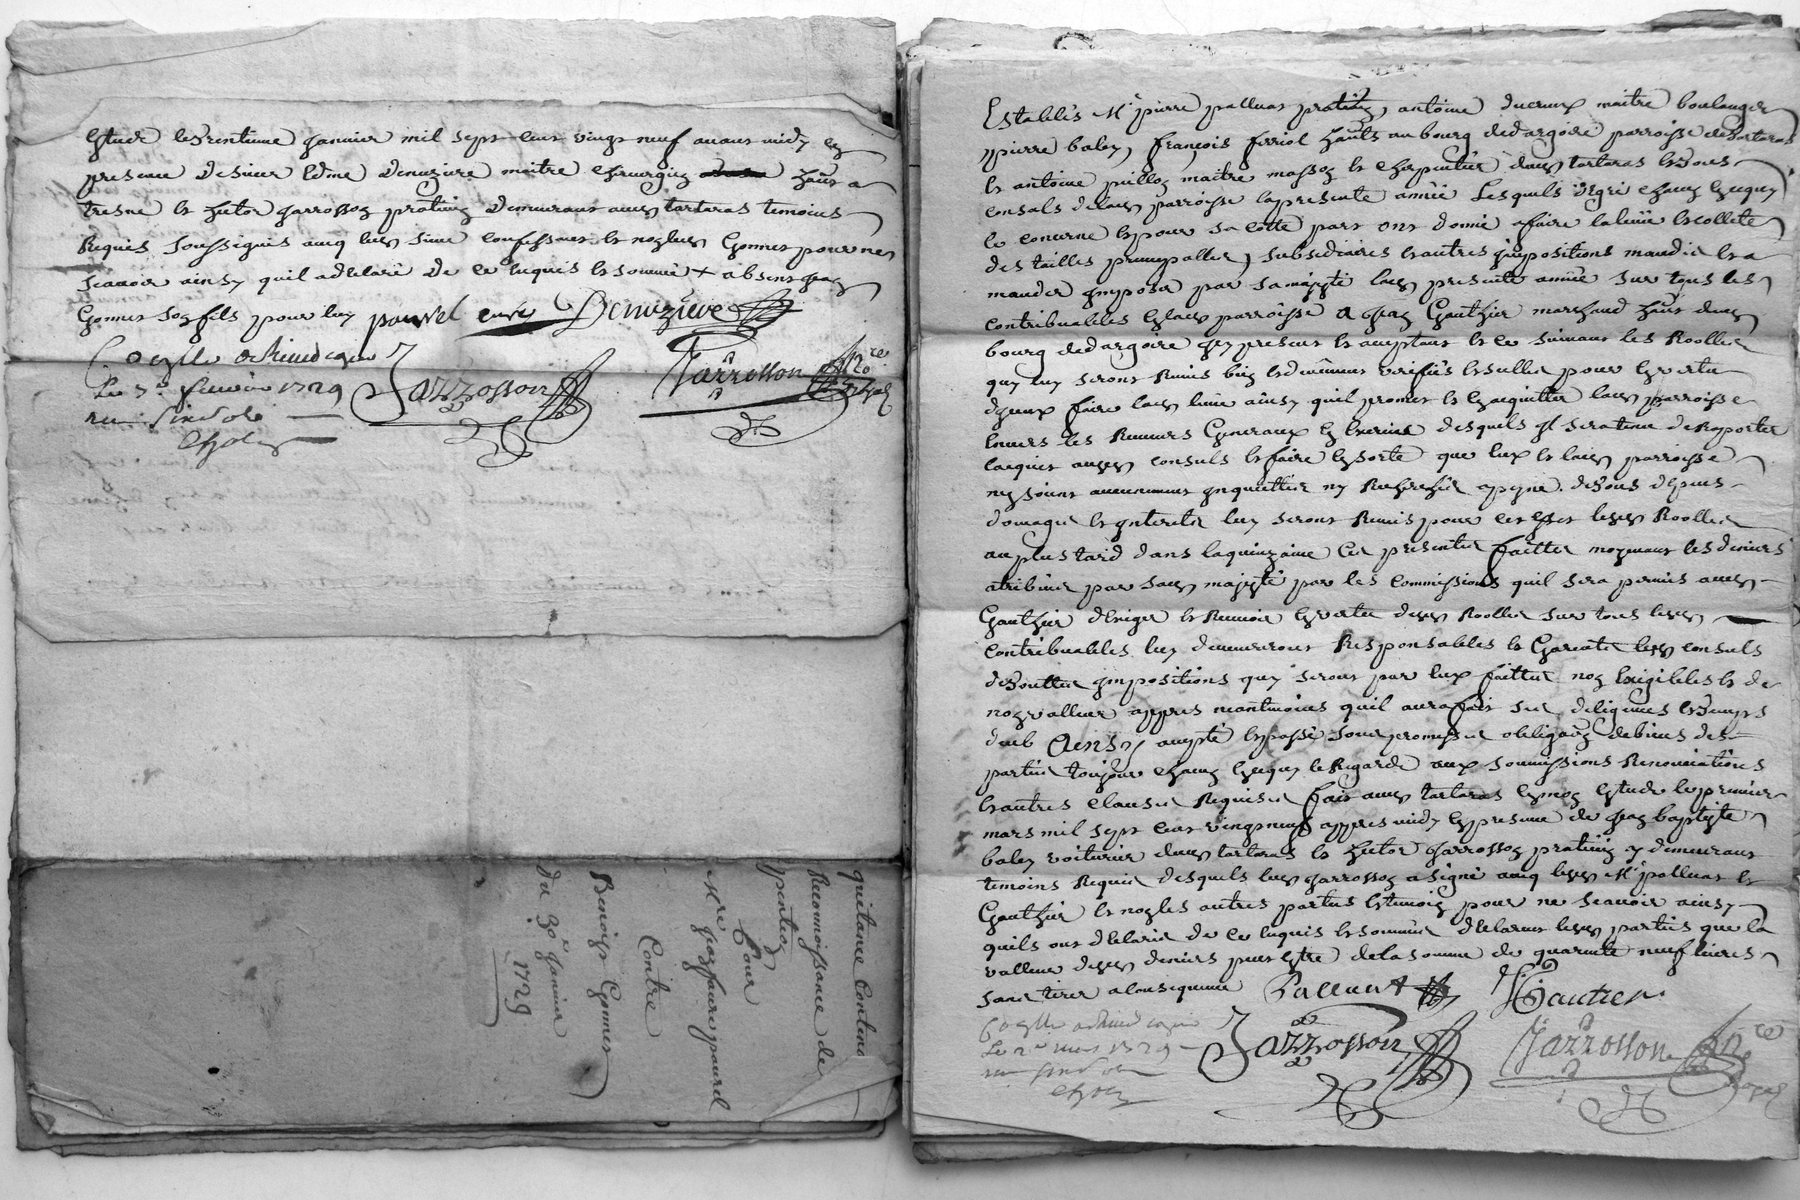 Estude le trentieme janvier mil sept cent vingt neuf avant midy en
presence de sieur Edme Denuziere maitre chirurgien hant a
tresne et hector jarrosson praticien demeurant aud tartaras temoins
Requis soussignés avec led sieur confessant et non led Gonnet pour ne
scavoir ainsy quil a declaré de ce enquis et sommé + absent jean
Gonnet son fils pour luy pourret curé Denuziere
Controllé a Rivedegier
Le 3e fevrier 1729
Jarrosson
Jarrosson Nre Royal
quitance Contenant
Reconnoissance de
pention
Pour
Mre jean faure pourret
Contre
Benoist Gonnet
du 30e janvier
1729
Establis Mr pierre palluat praticien, antoine ducreux maitre boulanger
pierre baley, françois ferriol hants au bourg dedargoire parroisse de tartaras
et antoine puillon maitre masson et charpentier dud tartaras et tous
consuls de lad parroisse la presente année Lesquels de gré chacun en ce quy
le concerne et pour sa cotte part ont donné a faire la levée et collecte
des tailles principalles, subsediaires et autres impositions mandée et a
mander imposer par sa majesté lad presente année sur tous les
contribuables en lad parroisse a jean Gauthier marchand hant dud
bourg dedargoire icy present et acceptant et ce suivant les Roolles
quy luy seront Remis bien et deuement verifiés et sellés pour en vertu
diceux faire lad levée ainsy quil promet et den acquitter lad parroisse
envers les Receveurs Generaux en exercice desquels il sera tenu de Raporter
lacquit auxd consuls et faire en sorte que eux et lad parroisse
ny soient aucunement inquiettés ny Recherchés a peyne de tous depens
domages et interets luy seront Remis pour cet effet lesd Roolles
au plus tard dans la quinzaine Ces presentes faittes moyenant les deniers
atribués par sad majesté par les commissions quil sera permis aud
Gauthier dexiger et Recevoir en vertu desd Roolles sur tous lesd
contribuables luy demeureront Responsables et Garents lesd consuls
de touttes impositions quy seront par eux faittes non exigibles et de
non valleur appres neantmoins quil aura fait ses diligences et temps
deub Ainsy accepté et passé sous promesses obligaon de biens des
parties toujour chacun en ce quy le Regarde aux soumissions Renonciations
et autres clauses Requises fait aud tartaras en mon estude le premier
mars mil sept cent vingt neuf appres midy en presence de jean baptiste
baley voiturier dud tartaras et hector jarrosson praticien y demeurant
temoins Requis desquels led jarrosson a signé avec lesd Mr palluat et
Gauthier et non les autres parties et temoin pour ne scavoir ainsy
quils ont declaré de ce enquis et sommés declarent lesd parties que la
valleur desd deniers peut estre de la somme de quarente neuf livres
sans tirer a consequence Palluat Gautier
Controllé a Rivedegier
Le 2e mars 1729
Jarrosson
Jarrosson Nre Royal